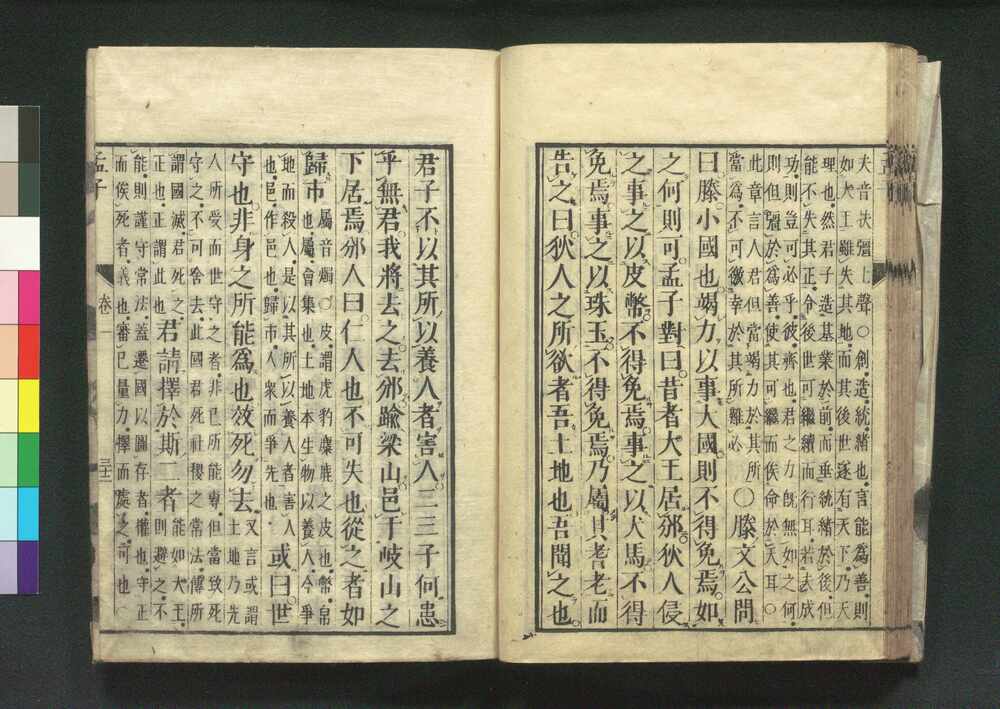 夫音扶彊上聲○創造統緒也言能為善則
如大王雖失其地而其後世遂有天下乃天
理也然君子造基業於前而垂統緒於後但
能不失其正令後世可繼續而行耳若夫成
功則豈可必乎彼齊也君之力旣無如之何
則但彊於為善使其可繼而俟命於天耳○
此章言人君但當竭力於其所
當為不可徼幸於其所難必
○滕文公問
曰滕小國也竭力以事大國則不得免焉如
之何則可孟子對曰昔者大王居邠狄人侵
之事之以皮幣不得免焉事之以犬馬不得
免焉事之以珠玉不得免焉乃屬其耆老而
告之曰狄人之所欲者吾土地也吾聞之也
君子不以其所以養人者害人二三子何患
乎無君我將去之去邠踰梁山邑于岐山之
下居焉邠人曰仁人也不可失也從之者如
歸市
屬音燭○皮謂虎豹麋鹿之皮也幣帛
也屬會集也土地本生物以養人今爭
地而殺人是以其所以養人者害人
也邑作邑也歸市人衆而爭先也
或曰世
守也非身之所能為也效死勿去
又言或謂
土地乃先
人所受而世守之者非己所能專但當致死
守之不可舍去此國君死社稷之常法傳所
謂國滅君死之
正也正謂此也
君請擇於斯二者
能如大王
則避之不
能則謹守常法蓋遷國以圖存者權也守正
而俟死者義也審己量力擇而處之可也○
孟子
卷一
三十二